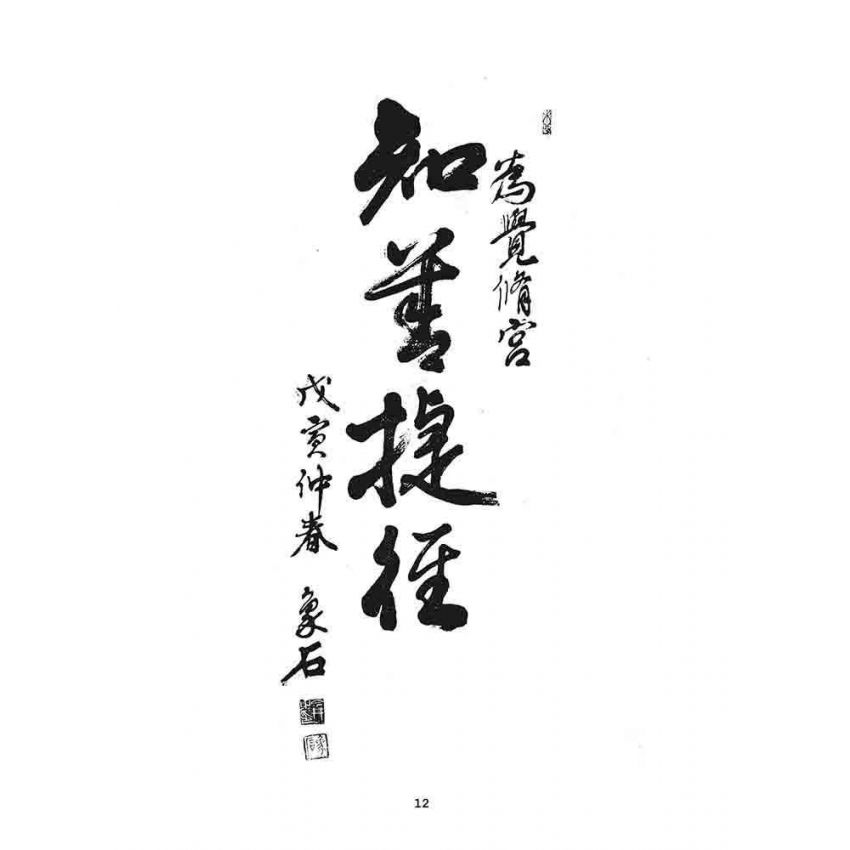 為覺修宮
知善捷徑
戊寅仲春 象石
12